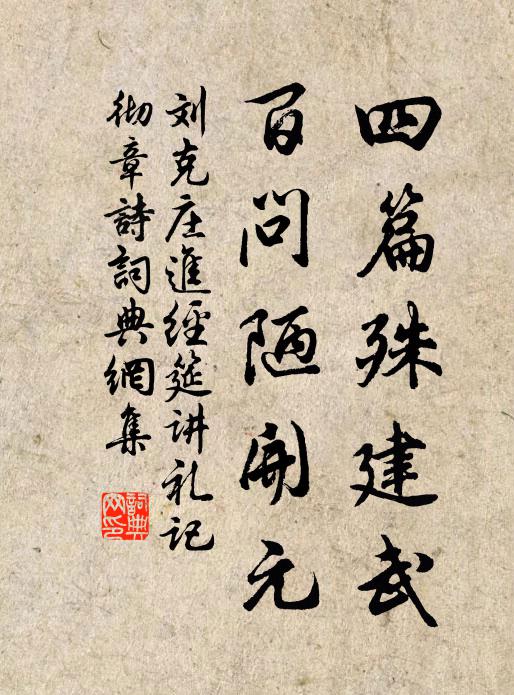 四篇殊建武
百问陋開元
刘克庄進經筵讲礼记
彻章詩詞典網集
詞典网印